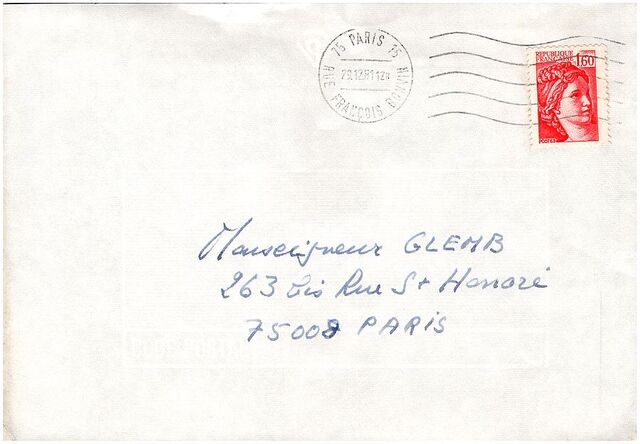 75 PARIS 75
29.12.81 12H
RUE FRANÇOIS BONVIN
REPUBLIQUE
FRANÇAISE
1,60
POSTES
Monseigneur GLEMB
263 bis Rue St Honoré
75008 PARIS